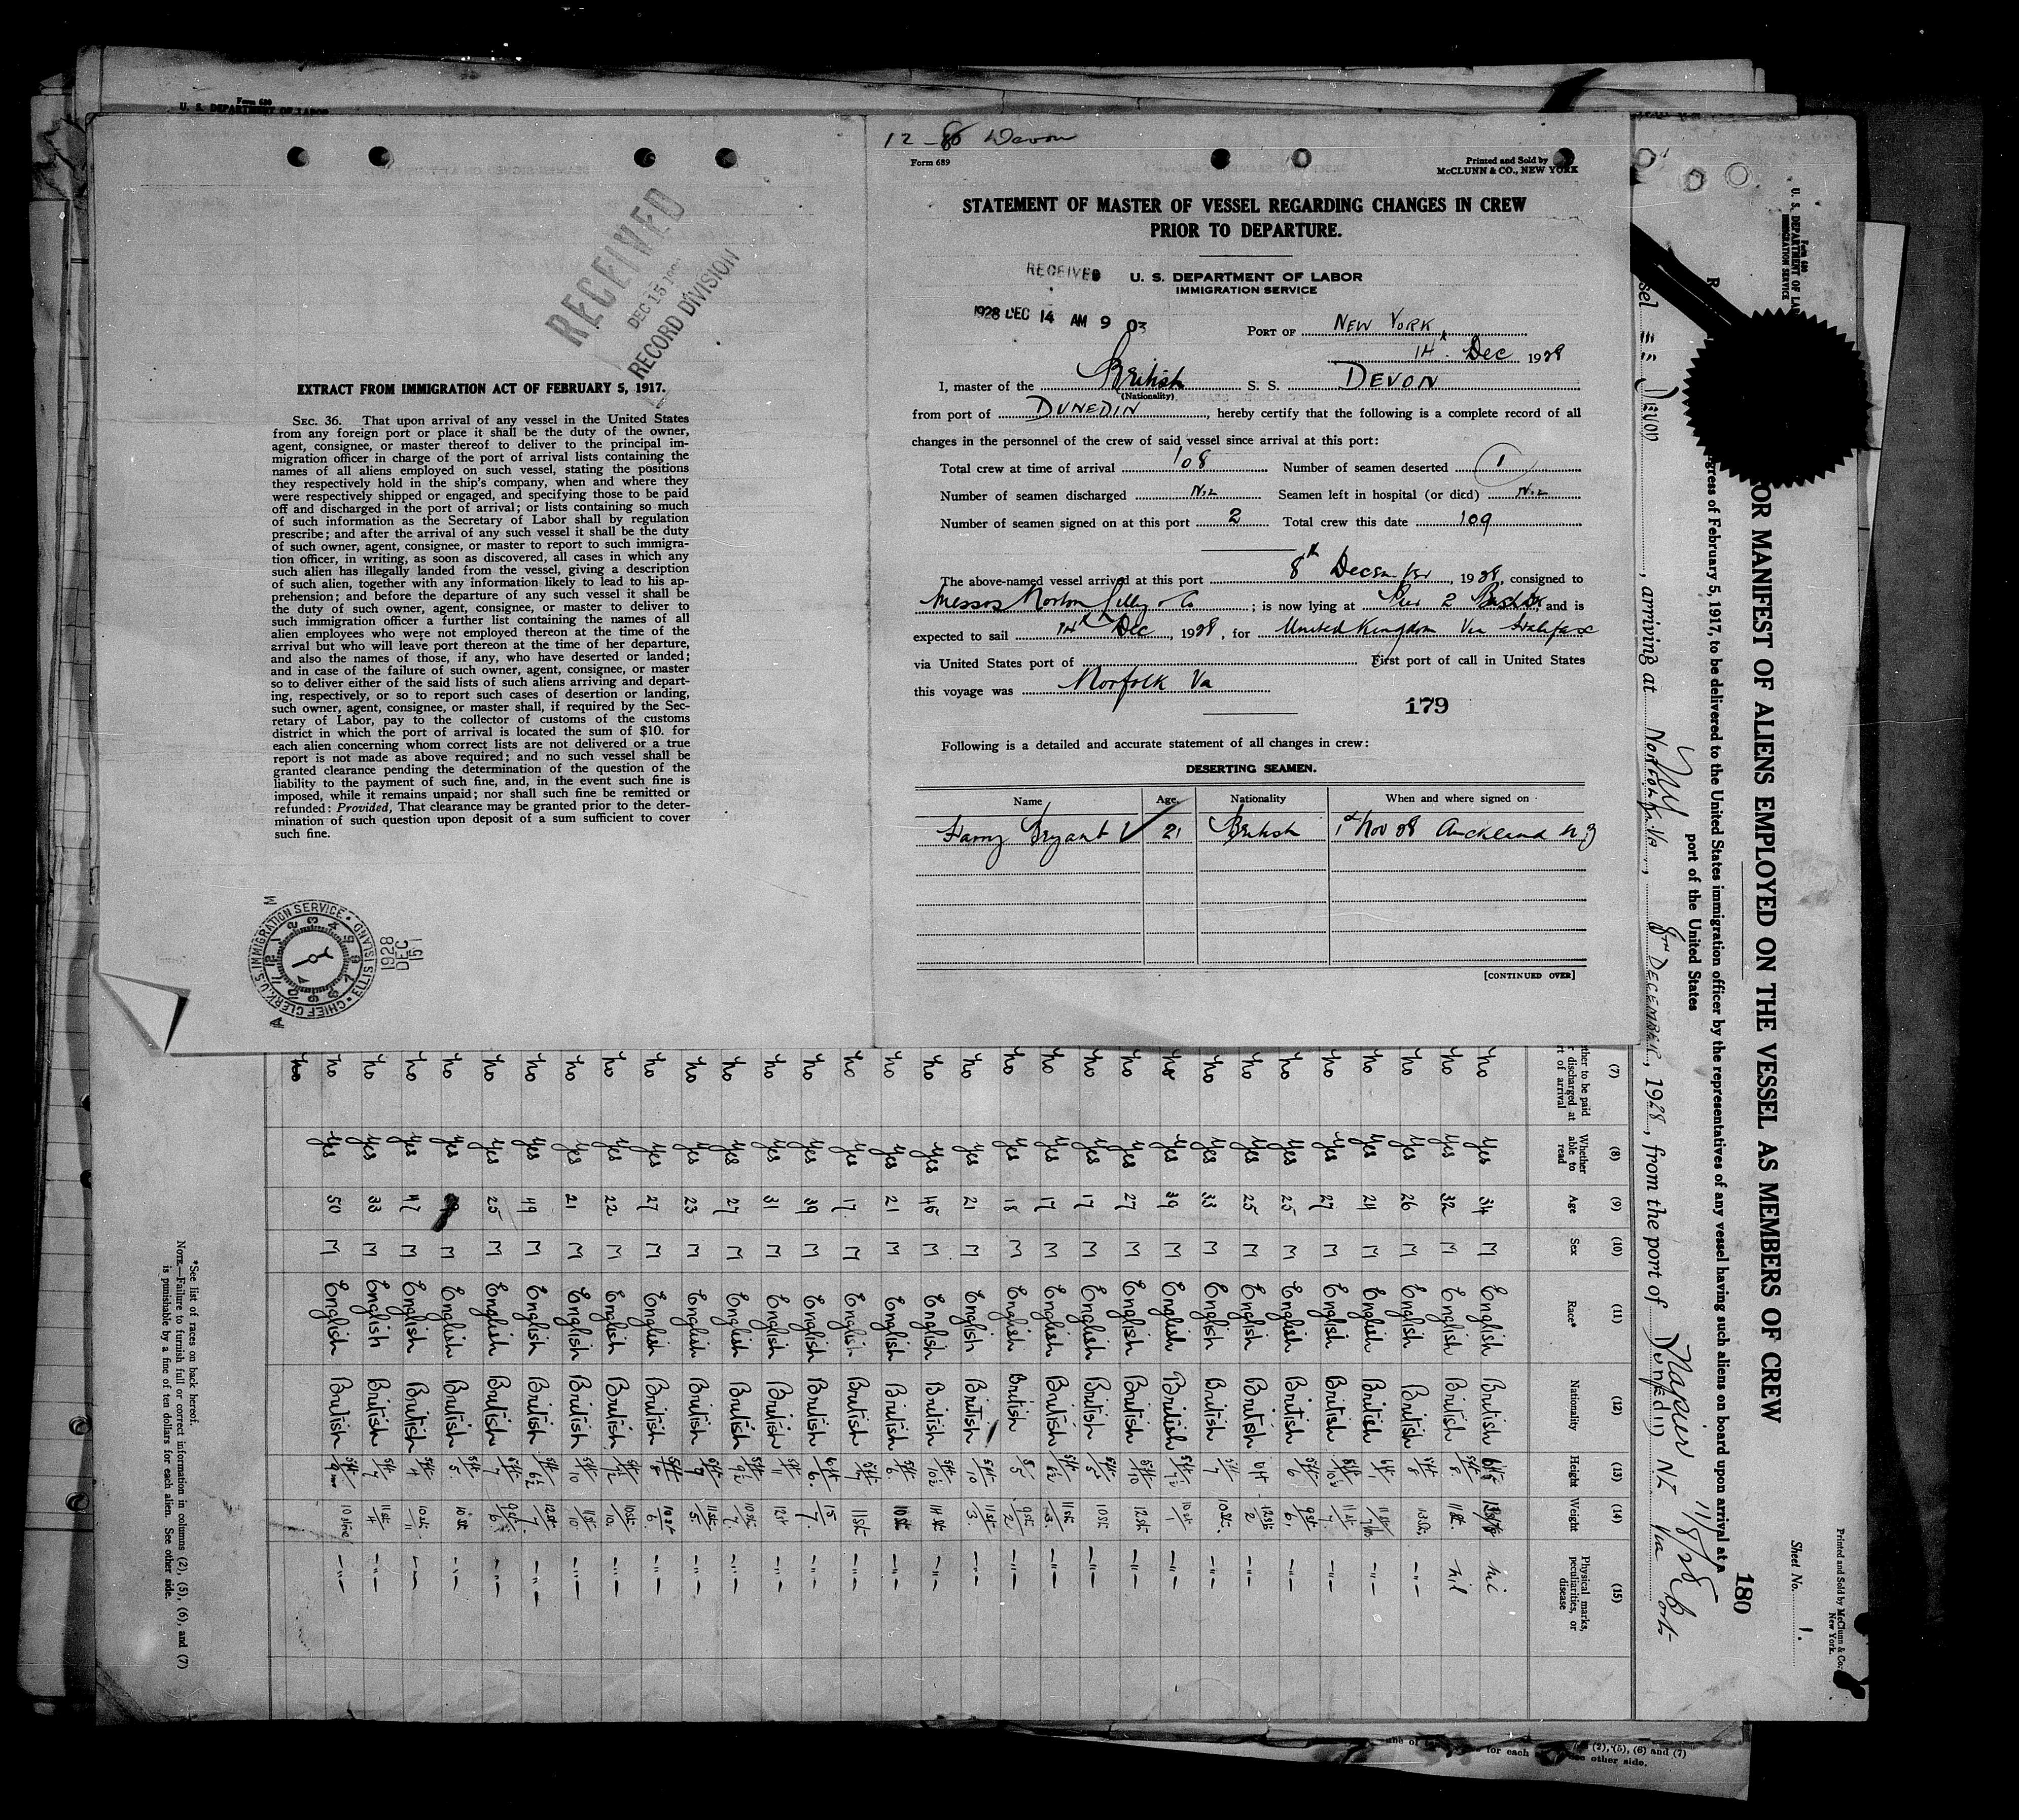 Form 680
U. S. DEPARTMENT OF LABOR
RECEIVED
DEC 15
RECORD DIVISION
EXTRACT FROM IMMIGRATION ACT OF FEBRUARY 5, 1917.
SEC. 36. That upon arrival of any vessel in the United States
from any foreign port or place it shall be the duty of the owner,
agent, consignee, or master thereof to deliver to the principal im-
migration officer in charge of the port of arrival lists containing the
names of all aliens employed on such vessel, stating the positions
they respectively hold in the ship's company, when and where they
were respectively shipped or engaged, and specifying those to be paid
off and discharged in the port of arrival; or lists containing so much
of such information as the Secretary of Labor shall by regulation
prescribe; and after the arrival of any such vessel it shall be the duty
of such owner, agent, consignee, or master to report to such immigra-
tion officer, in writing, as soon as discovered, all cases in which any
such alien has illegally landed from the vessel, giving a description
of such alien, together with any information likely to lead to his ap-
prehension; and before the departure of any such vessel it shall be
the duty of such owner, agent, consignee, or master to deliver to
such immigration officer a further list containing the names of all
alien employees who were not employed thereon at the time of the
arrival but who will leave port thereon at the time of her departure,
and also the names of those, if any, who have deserted or landed;
and in case of the failure of such owner, agent, consignee, or master
so to deliver either of the said lists of such aliens arriving and depart-
ing, respectively, or so to report such cases of desertion or landing,
such owner, agent, consignee, or master shall, if required by the Sec-
retary of Labor, pay to the collector of customs of the customs
district in which the port of arrival is located the sum of $10. for
each alien concerning whom correct lists are not delivered or a true
report is not made as above required; and no such vessel shall be
granted clearance pending the determination of the question of the
liability to the payment of such fine, and, in the event such fine is
imposed, while it remains unpaid; nor shall such fine be remitted or
refunded: Provided, That clearance may be granted prior to the deter-
mination of such question upon deposit of a sum sufficient to cover
such fine.
CHIEF CLERK, U.S. IMMIGRATION SERVICE ELLIS ISLAND
1928
DEC
15
12 - Devon
Form 689
Printed and Sold by
McCLUNN & CO., NEW YORK
STATEMENT OF MASTER OF VESSEL REGARDING CHANGES IN CREW
PRIOR TO DEPARTURE.
RECEIVED
U. S. DEPARTMENT OF LABOR
IMMIGRATION SERVICE
1928 DEC 14 AM 9 03
PORT OF NEW YORK
14th Dec 1928
I, master of the British S. S. DEVON
(Nationality)
from port of DUNEDIN, hereby certify that the following is a complete record of all
changes in the personnel of the crew of said vessel since arrival at this port:
Total crew at time of arrival 108 Number of seamen deserted 1
Number of seamen discharged Nil Seamen left in hospital (or died) Nil
Number of seamen signed on at this port 2 Total crew this date 109
The above-named vessel arrived at this port 8th December, 1928, consigned to
Messrs Norton Lilly & Co; is now lying at Pier 2 and is
expected to sail 14th Dec, 1928, for United Kingdom Via Halifax
via United States port of First port of call in United States
this voyage was Norfolk Va
179
Following is a detailed and accurate statement of all changes in crew:
DESERTING SEAMEN.
Name Age. Nationality When and where signed on
Harry Bryant 21 British 1st Nov 28 Auckland N Z
[CONTINUED OVER]
Printed and Sold by McClunn & Co.
New York.
Sheet No. 1.
Form 680
U. S. DEPARTMENT OF LA
IMMIGRATION SERVICE
180
OR MANIFEST OF ALIENS EMPLOYED ON THE VESSEL AS MEMBERS OF CREW
gress of February 5, 1917, to be delivered to the United States immigration officer by the representatives of any vessel having such aliens on board upon arrival at a
port of the United States
NY Napier 11/8/28
sel SS DEVON, arriving at Norfolk Va, 8th DECEMBER, 1928, from the port of Dunedin NZ Via Port
(7) (8) (9) (10) (11) (12) (13) (14) (15)
ther to be paid
r discharged at
rt of arrival
Whether
able to
read
Age
Sex
Race*
Nationality
Height
Weight
Physical marks,
peculiarities, or
disease
no Yes 34 M English British nil
no Yes 32 M English British 11 st. nil
no Yes 26 M English British
no Yes 24 M English British
no Yes 27 M English British
no Yes 25 M English British
no Yes 25 M English British
no Yes 33 M English British
no Yes 39 M English British
no Yes 27 M English British
no Yes 17 M English British
no Yes 17 M English British
no Yes 18 M English British
no Yes 21 M English British
no Yes 46 M English British
no Yes 21 M English British
no Yes 17 M English British
no Yes 39 M English British
no Yes 31 M English British
no Yes 27 M English British
no Yes 23 M English British
no Yes 27 M English British
no Yes 22 M English British
no Yes 21 M English British
no Yes 49 M English British
no Yes 25 M English British
no Yes M English British
no Yes 47 M English British
no Yes 33 M English British
no Yes 50 M English British
*See list of races on back hereof.
NOTE.—Failure to furnish full or correct information in columns (2), (5), (6), and (7)
is punishable by a fine of ten dollars for each alien. See other side.
(2), (5), (6) and (7)
for each
other side.